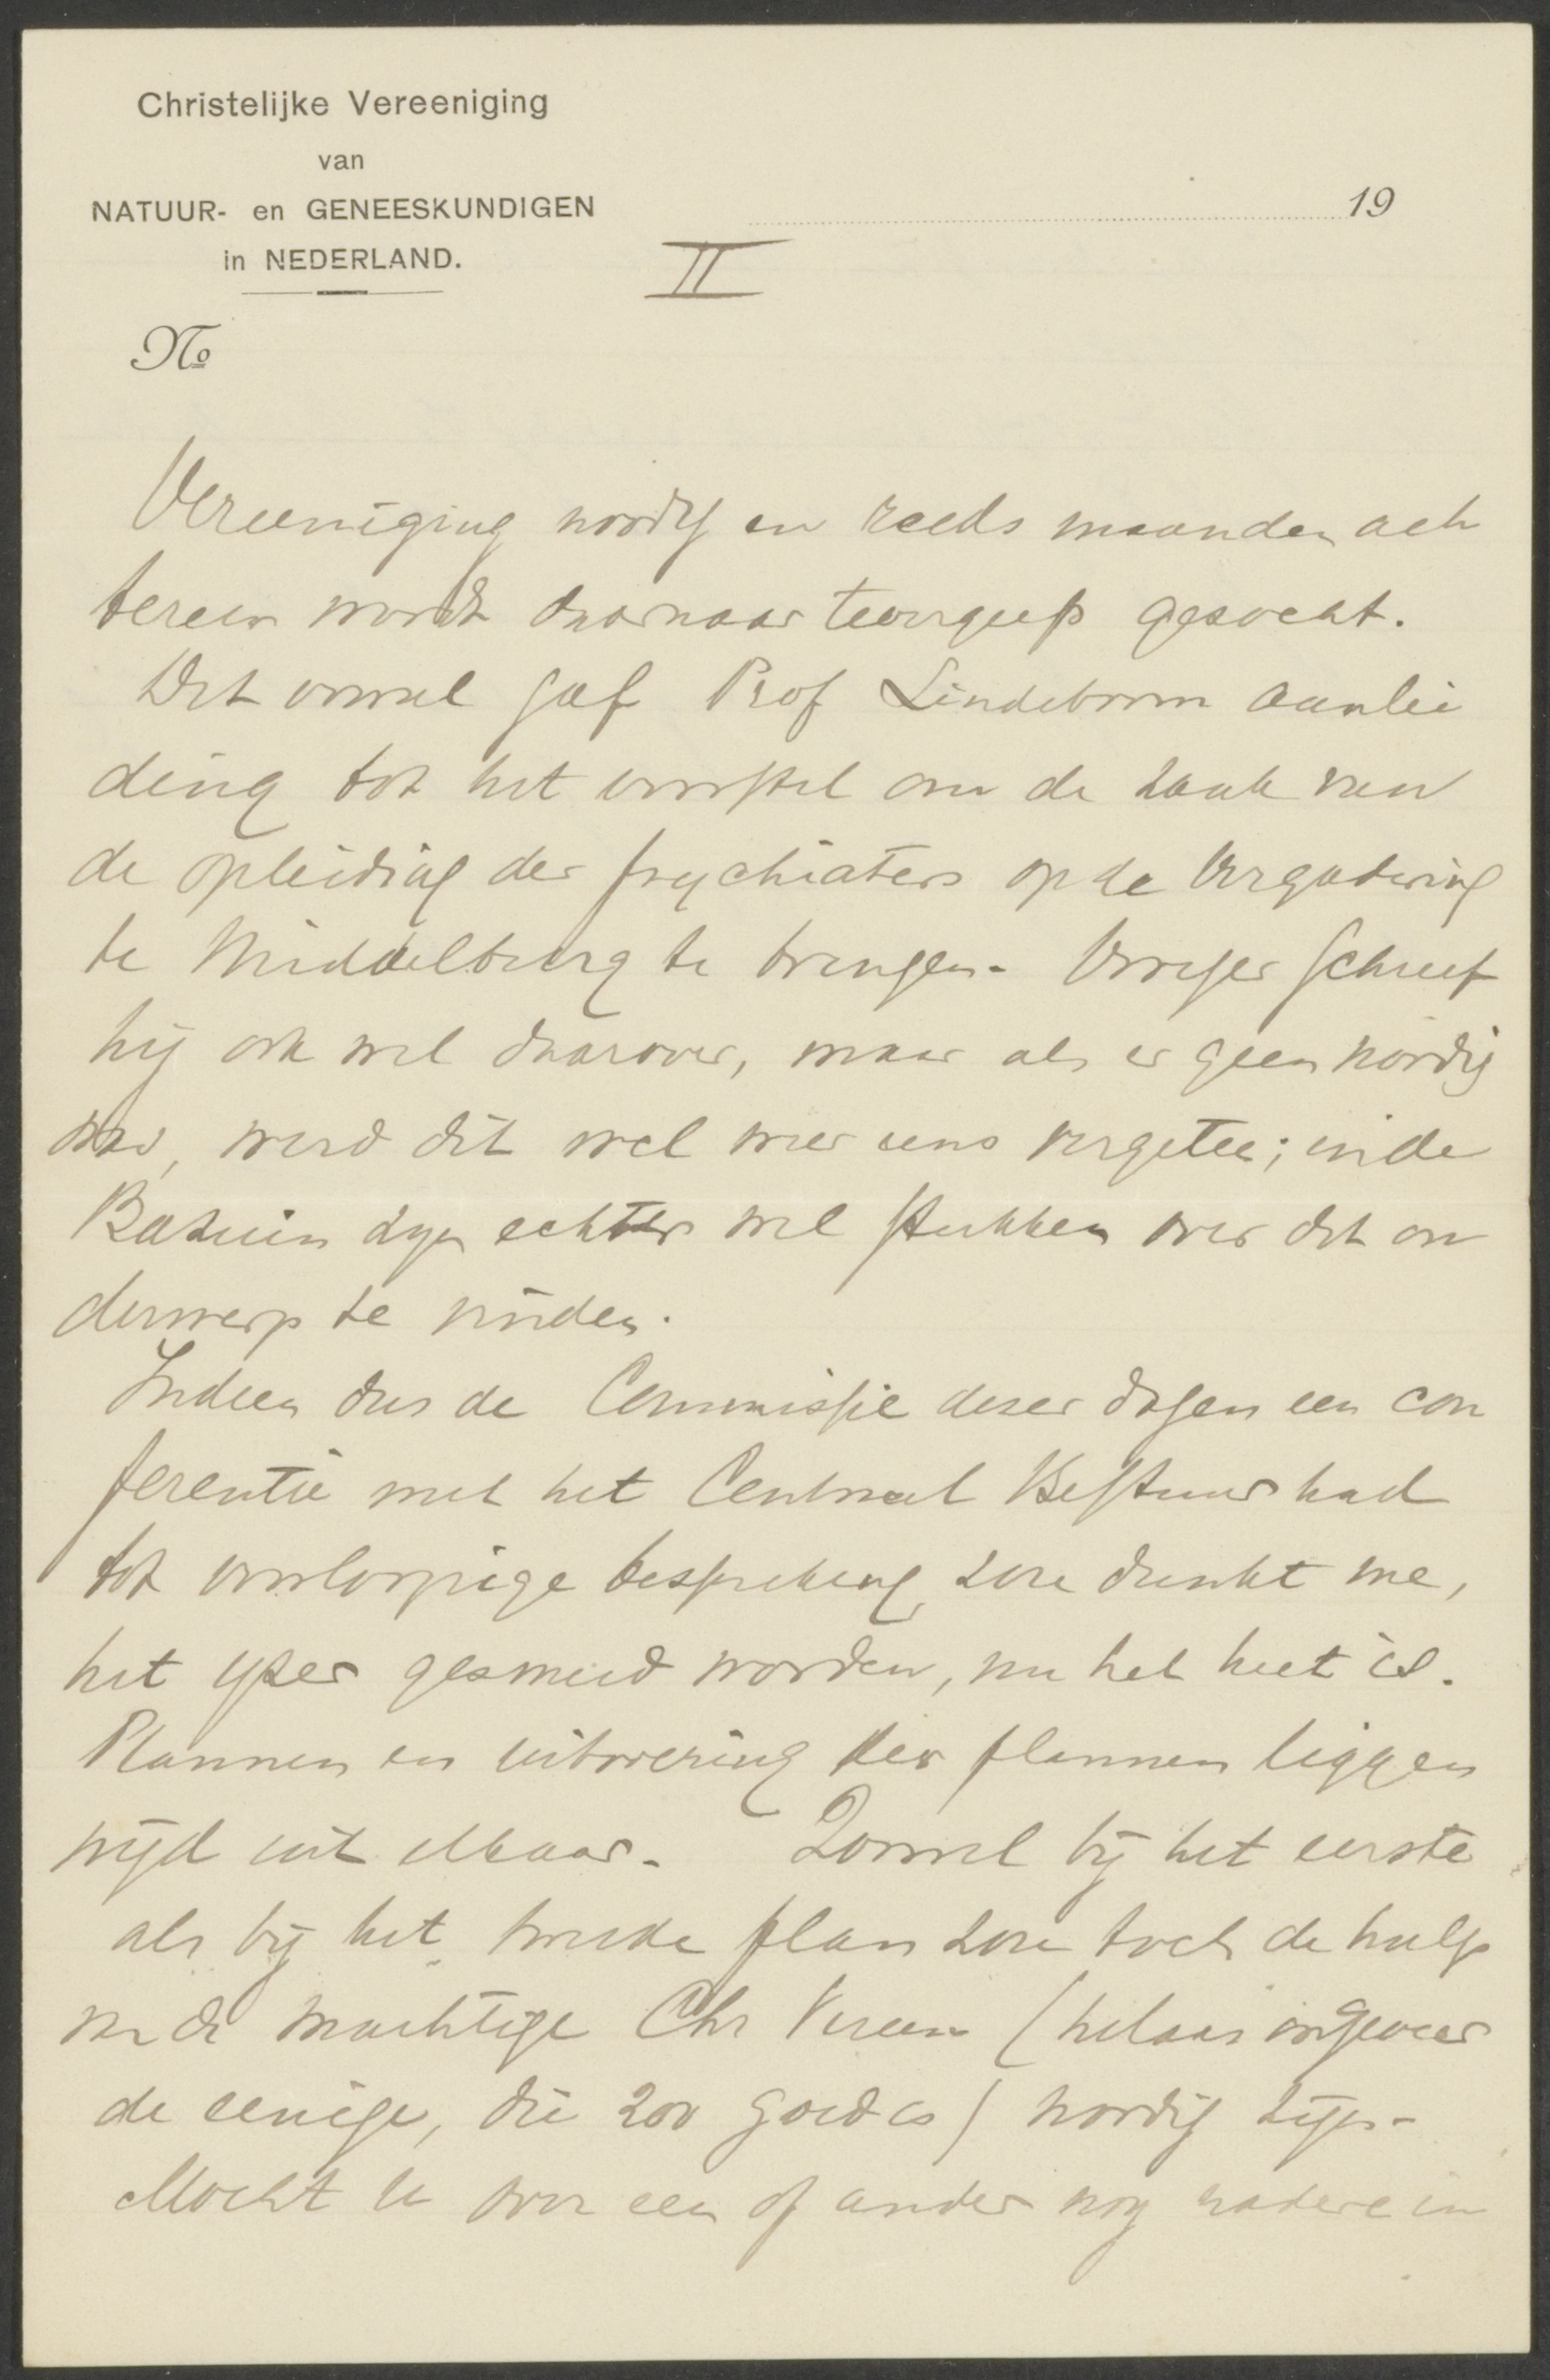 Christelijke Vereeniging
van
NATUUR- en GENEESKUNDIGEN
in NEDERLAND.
19
II
No
Vereeniging noodig en reeds maanden ach
tereen wordt daarnaar tevergeefs gezocht.
Dit vooral gaf Prof Lindeboom aanlei
ding tot het voorstel om de zaak van
de opleiding der psychiaters op de Vergadering
te Middelburg te brengen. Vroeger schreef
hij ook wel daarover, maar als er geen noodig
was, werd dit wel weer eens vergeten; in de
Bazuin zijn echter wel stukken over dit on
derwerp te vinden.
Indien dus de Commissie dezer dagen een con
ferentie met het Centraal Bestuur had
tot voorloopige bespreking zou dunkt me,
het yzer gesmeed worden, nu het heet is.
Plannen en uitvoering der plannen liggen
wijd uit elkaar. Zoowel bij het eerste
als bij het tweede plan zou toch de hulp
van de machtige Chr Vereen (helaas ongeveer
de eenige, die zoo goed is) noodig zijn.
Mocht U over een of ander nog nadere in